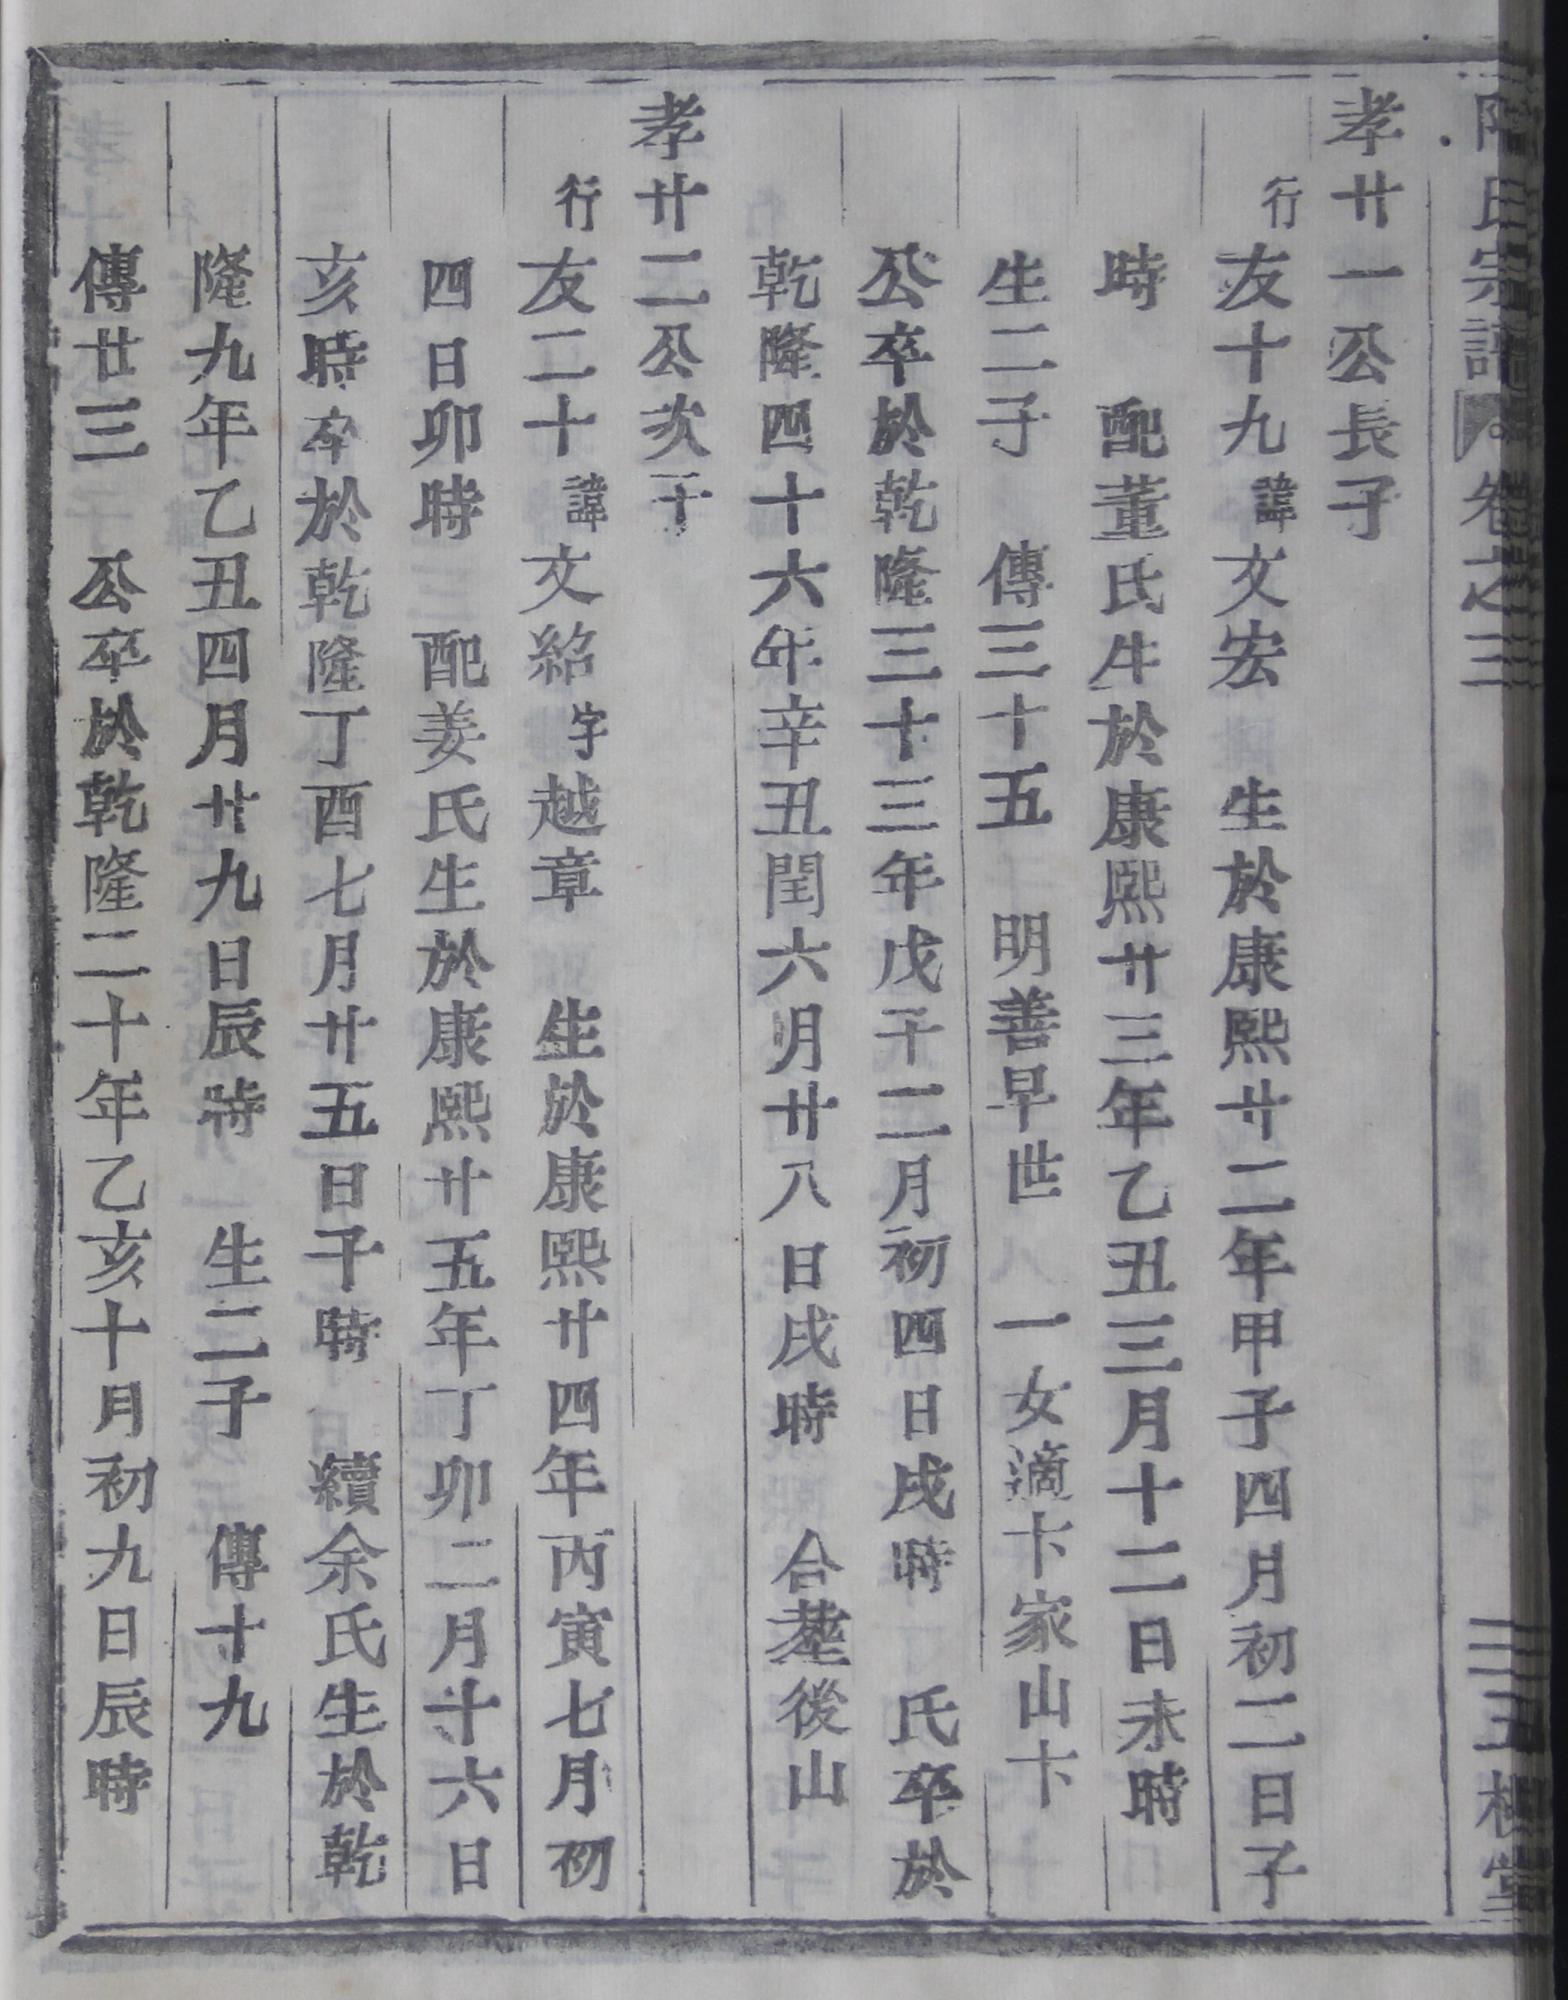 氏宗譜 卷之三 三五槐堂
孝廿一公長子
行友十九諱文宏 生於康熙廿二年甲子四月初二日子
時 配董氏生於康熙廿三年乙丑三月十二日未時
生二子 傳三十五 明善早世 一女適卞家山卞
公卒於乾隆三十三年戊子二月初四日戌時 氏卒於
乾隆四十六年辛丑閏六月廿八日戌時 合塟後山
孝廿二公次子
行友二十諱文紹字越章 生於康熙廿四年丙寅七月初
四日卯時 配姜氏生於康熙廿五年丁卯二月十六日
亥時卒於乾隆丁酉七月廿五日子時 續余氏生於乾
隆九年乙丑四月廿九日辰時 生二子 傳十九
傳廿三 公卒於乾隆二十年乙亥十月初九日辰時